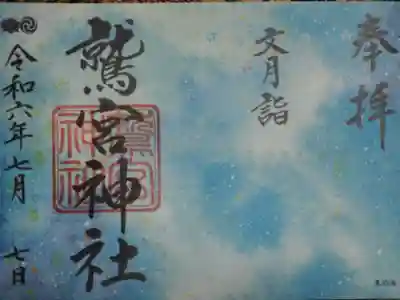 奉拝
文月詣
鷲宮神社
令和六年七月七日